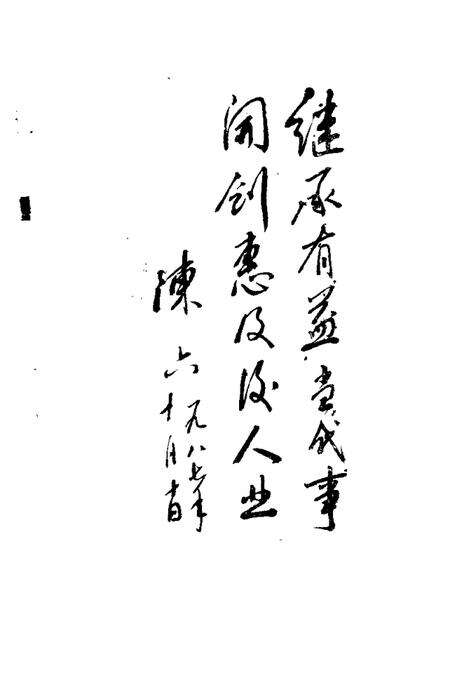 继承有益当代事
開创惠及後人业
陳
一九八七年
十月